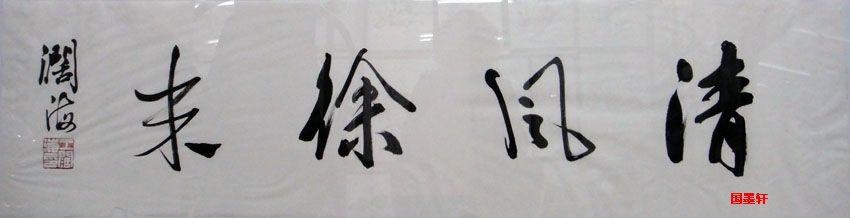 清风徐来
阔海
国墨轩